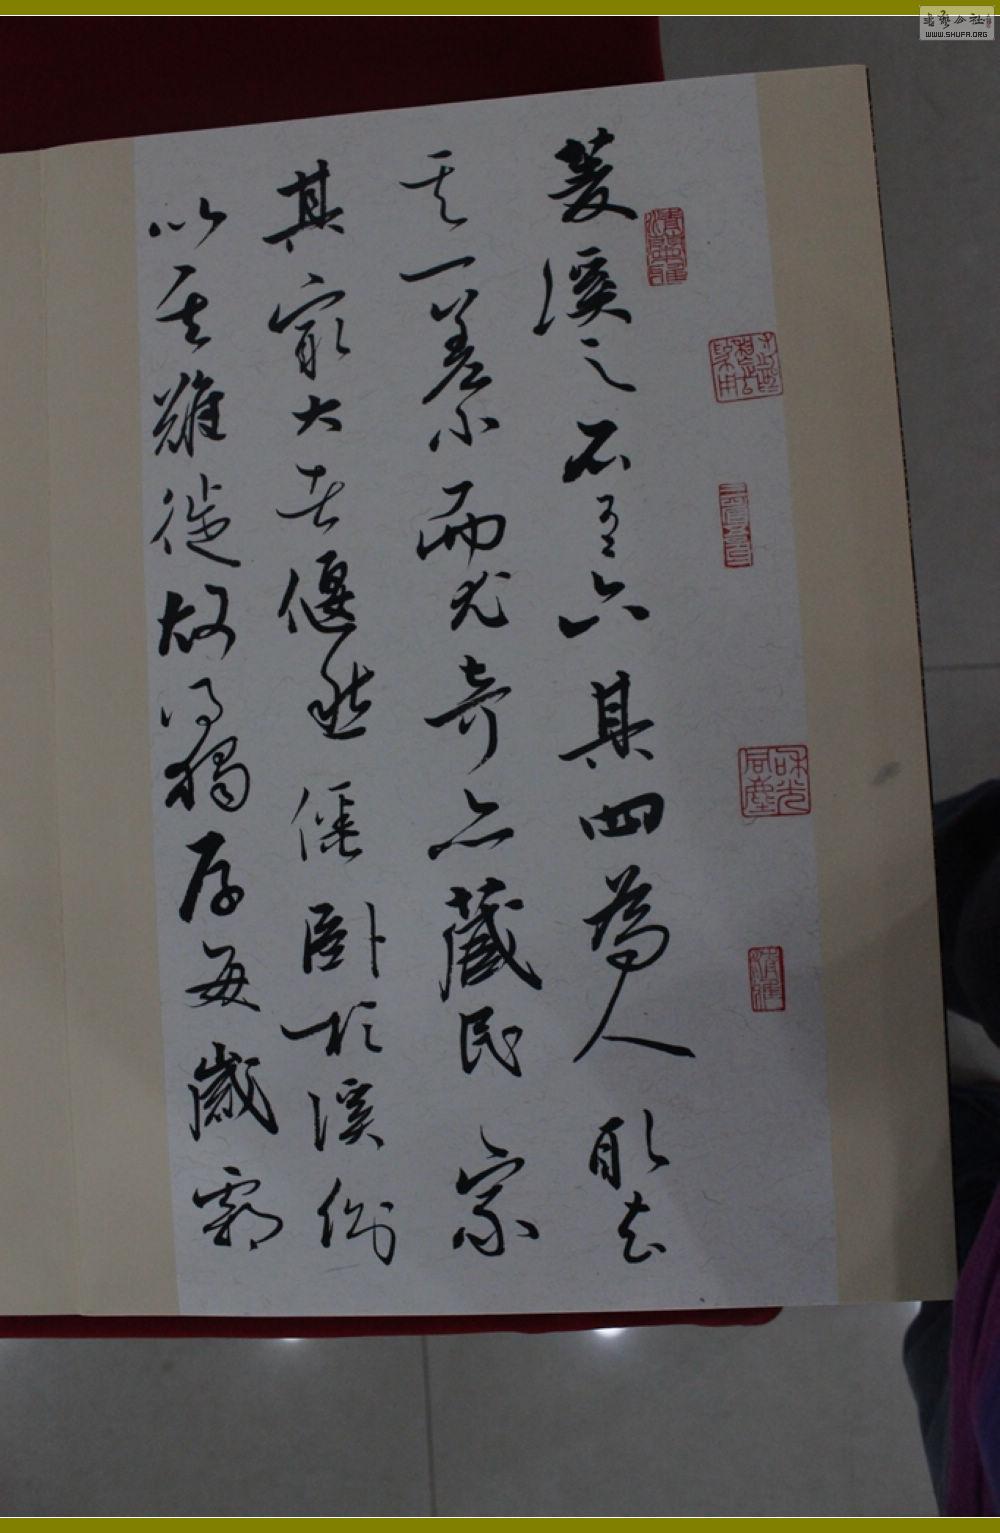 菱溪之石有六其四為人取去
其一差小而尤奇亦藏民家
其最大者偃然僵卧於溪側
以其難徙故得獨存每歲霜
和光同塵
書藝公社
WWW.SHUFA.ORG